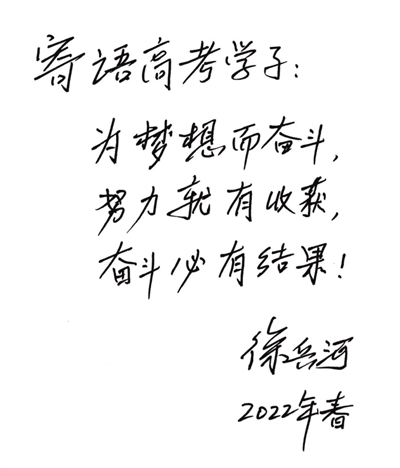 寄语高考学子:
为梦想而奋斗,
努力就有收获,
奋斗必有结果!
徐兵河
2022年春